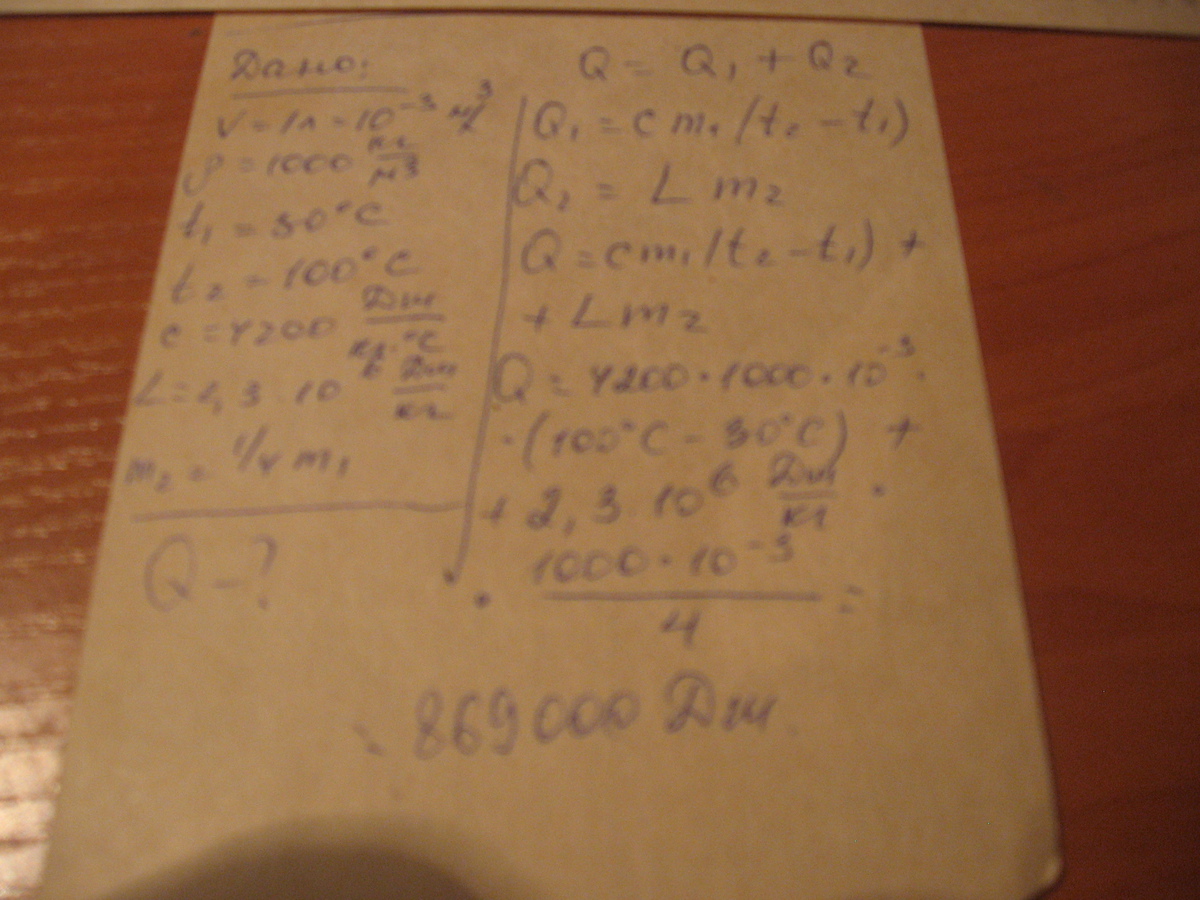 Дано:
V = 1л = 10⁻³ м³
ρ = 1000 кг/м³
t₁ = 30°C
t₂ = 100°C
c = 4200 Дж/кг·°C
L = 2,3 · 10⁶ Дж/кг
m₂ = 1/4 m₁
Q – ?
Q = Q₁ + Q₂
Q₁ = c m₁ (t₂ – t₁)
Q₂ = L m₂
Q = c m₁ (t₂ – t₁) +
+ L m₂
Q = 4200 · 1000 · 10⁻³ ·
· (100°C – 30°C) +
+ 2,3 · 10⁶ Дж/кг ·
· 1000 · 10⁻³ / 4 =
869000 Дж